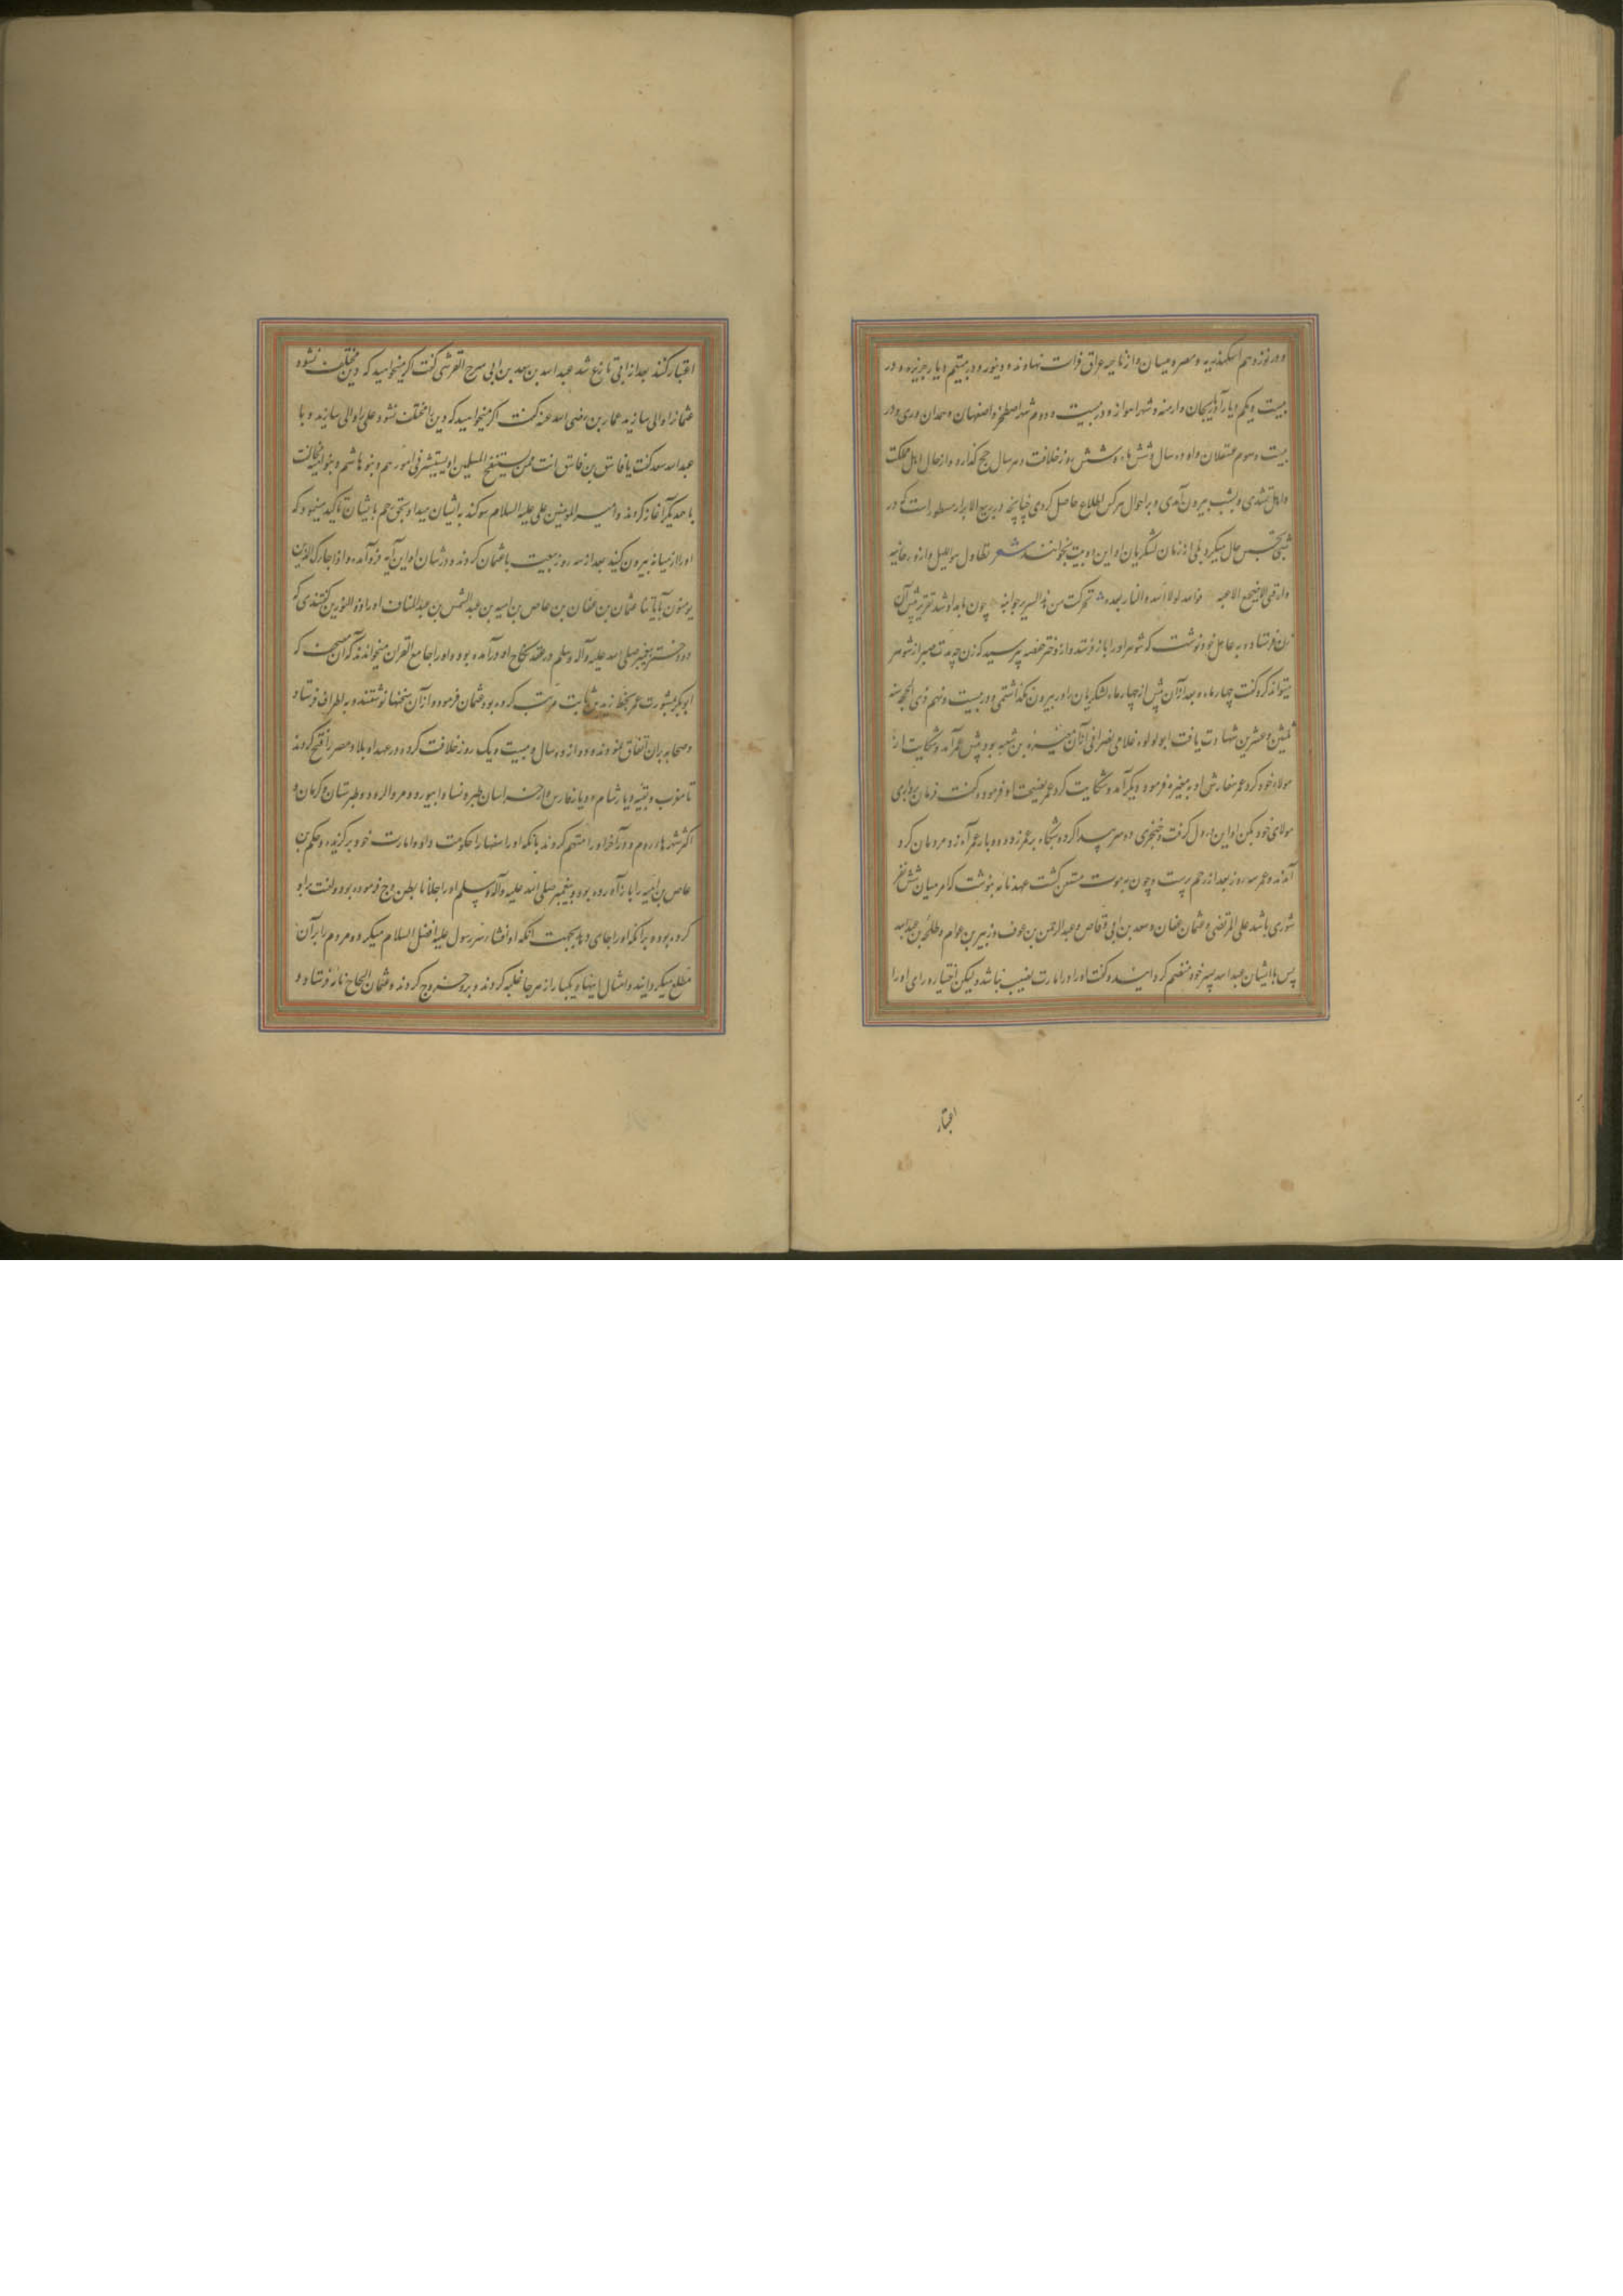 و در نوزدهم اسکندریه و مصر و میسان و از ناحیه عراق فرات نهاوند و دینور و در بیستم دیار جزیره و در
بیست و یکم دیار آذربیجان و ارمنه و شهر اهواز و در بیست و دوم شهر اصطخر و اصفهان و همدان و ری و در
بیست و سوم عسقلان و او ده سال و شش ماه و شش روز خلافت و هر سال حج گذارد و از حال اهل مملکت
و اهل شدی و بشب بیرون آمدی و بر احوال هرکس اطلاع حاصل کردی چنانچه در ربیع الابرار مسطور است که در
شبی تجسس حال میکرد یکی از زنان لشکریان او این دو بیت بخواند شعر تطاول هذا اللیل و ازور جانبه
و ارقنی الا ضجیع الاعبه فوالله لولا الله و النار بعده تحرکت من هذا السریر جوانبه چون بامداد شد پیش آن
زن فرستاد و به عامل خود نوشت که شوهر او را باز فرستد و از دختر حفصه پرسید که زن چه مدت صبر از شوهر
میتواند کرد گفت چهار ماه و بعد از آن بیش از چهار ماه لشکریان را در بیرون نگذاشتی و در بیست و نهم ذی الحجه سنه
ثلث و عشرین شهادت یافت ابو لولوء غلامی نصرانی از آن مغیره بن شعبه بود پیش عمر آمد و شکایت از
مولاء خود کرد عمر سفارش او به مغیره فرمود دیگر آمد و شکایت کرد عمر نصیحت او فرمود و گفت فرمان برداری
مولای خود بکن او این در دل گرفت و خنجری دو سر پیدا کرد و شبگاه بر عمر زد و بار عمر آه زد و مردمان گرد
آمدند و عمر سه روز بعد از زخم بزیست و چون به موت متیقن گشت عهدنامه بنوشت که امر میان شش نفر
شوری باشد علی المرتضی و عثمان عفان و سعد بن ابی وقاص و عبدالرحمن بن عوف و زبیر بن عوام و طلحه بن عبیدالله
پس با ایشان عبدالله پسر خود منضم گردانیده گفت او را در امارت نصیب نباشد و لیکن اختیار و رای او را
اعتبار
اعتبار کنند بعد از وی تنازع شد عبدالله بن سعد بن ابی سرح القرشی گفت اگر میخواهید که دین مختلف نشود
عثمان را والی سازید عمار بن رضی الله عنه گفت اگر میخواهید که دین مختلف نشود علی را والی سازید و با
عبدالله سعد گفت یا فاسق بن فاسق انت ممن یستنصح المسلمین او یستشیر فی امورهم و بنو هاشم و بنو امیه مخالفت
با همدیگر آغاز کردند و امیر المومنین علی علیه السلام سوگند به ایشان میداد و بحق رحم با ایشان تاکید مینمود که
او را از میانه بیرون کنید بعد از سه روز بیعت با عثمان کردند و در شان او این آیه فرو آمده و اذا جاءک الذین
یومنون بآیاتنا عثمان بن عفان بن عاص بن امیه بن عبدالشمس بن عبدالمناف او را ذوالنورین گفتندی که
دو دختر پیغمبر صلی الله علیه و آله و سلم در عقد نکاح او درآمده بود و او را جامع القران میخواندند که آن مصحف که
ابوبکر بمشورت عمر بخط زید بن ثابت مرتب کرده بود عثمان فرمود و از آن نسخها نوشتند و به اطراف فرستاد
و صحابه بران اتفاق نمودند و دوازده سال و بیست و یک روز خلافت کرد و در عهد او بلاد مصر را فتح کردند
تا مغرب و بقیه دیار شام و دیار فارس و از خراسان طبره نسا و ابیورد و مرو الرود و طبرستان و کرمان و
اکثر شهرهاء روم و در آخر او را متهم کردند بانکه او را سفها را حکومت داد و امارت خود برگزیده و حکم بن
عاص بن امیه را باز آورده بود و پیغمبر صلی الله علیه و آله و سلم او را جلانا بطن وج فرموده بود و لعنت برو
کرده بود و بر آنکه او را جای دهد بجهت آنکه او افشاء سر رسول علیه افضل السلام میکرد و مردم را بر آن
مطلع میگردانید و امثال اینها و یکبار از هر جا غلبه کردند و برو خروج کردند و عثمان الحاح نامه فرستاد و